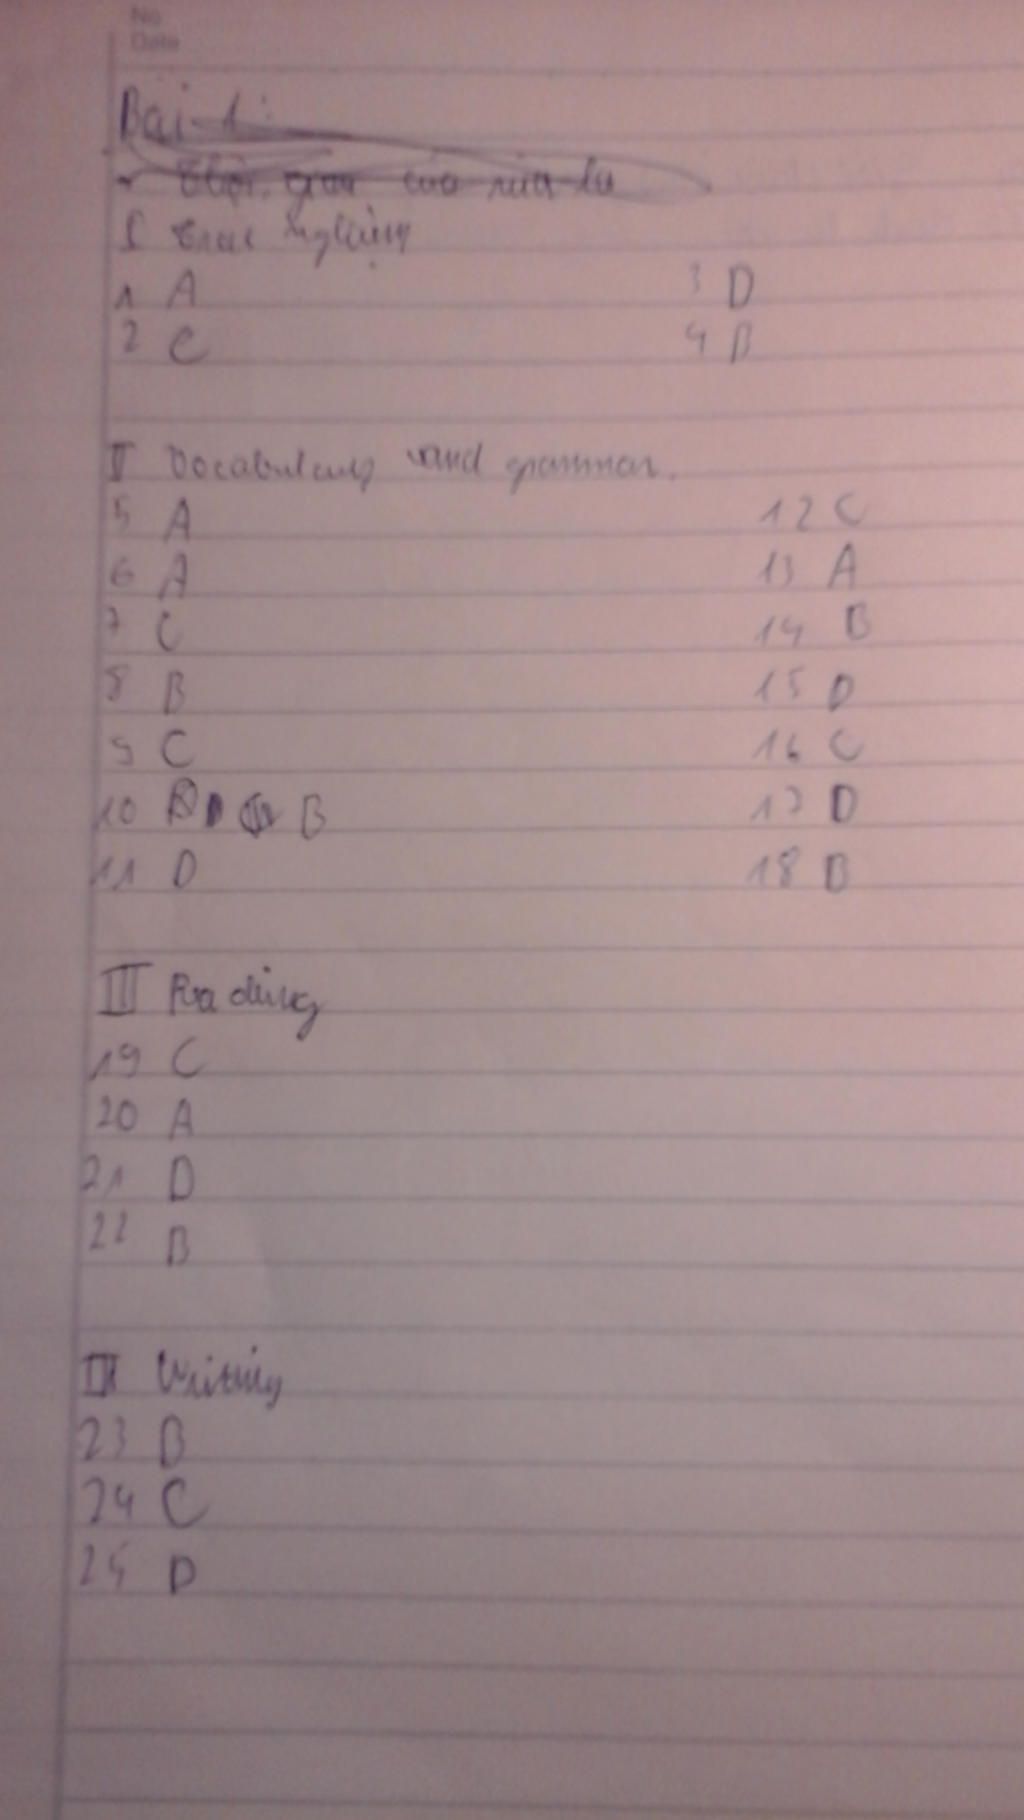 No
Date
Bài 1:
I Trắc nghiệm
1 A 3 D
2 C 4 B
II Vocabulary and grammar.
5 A 12 C
6 A 13 A
7 C 14 B
8 B 15 D
9 C 16 C
10 B
17 D
11 D 18 B
III Reading
19 C
20 A
21 D
22 B
Writing
23 B
24 C
25 D